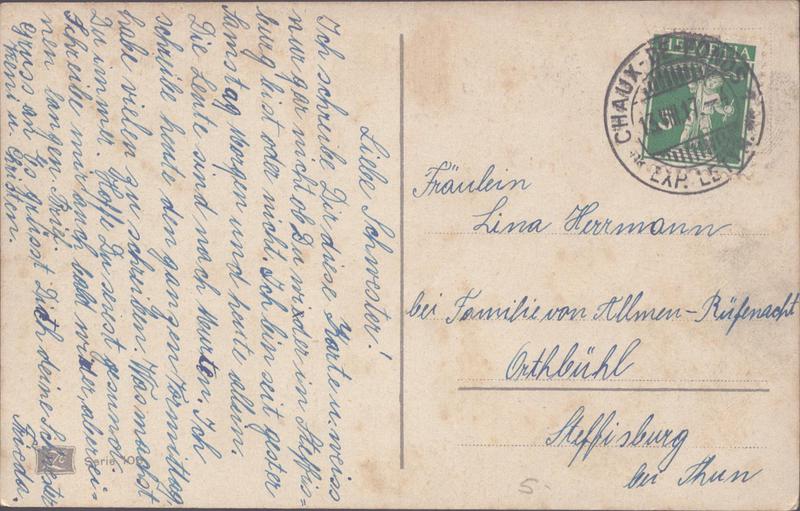 Liebe Schwester!
Ich schreibe Dir diese Karte u. weiss
nur gar nicht ob Du wieder in Steffis=
burg bist oder nicht. Ich bin seit gester
Samstag Morgen und heute allein.
Die Leute sind nach Murten. Ich
schreibe heute den ganzen Vormittag
habe vielen zu schreiben. Was machst
Du immer. Hoffe Du seist gesund.
Schreibe mir auch bald wieder, aber ei-
nen langen Brief.
Gruss an Es grüsst Dich deine Schwester
Heni u. Christen. Frieda.
Serie 109
HELVETIA
CHAUX-DE-FONDS
EXP. LET.
Fräulein
Lina Herrmann
bei Familie von Allmen-Rüfenacht
Orthbühl
Steffisburg
bei Thun
5.-